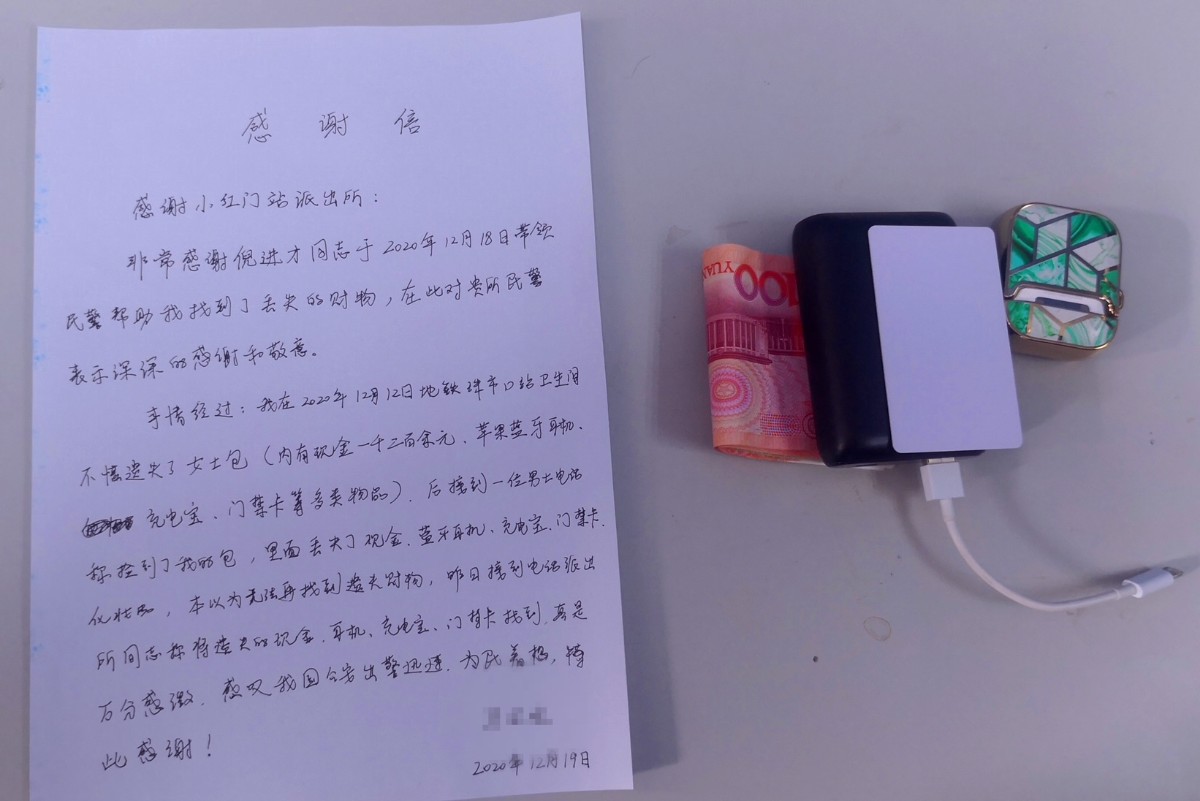 感谢信
感谢小红门站派出所：
非常感谢倪进才同志于2020年12月18日带领
民警帮助我找到了丢失的财物，在此对贵所民警
表示深深的感谢和敬意。
事情经过：我在2020年12月12日地铁珠市口站卫生间
不慎遗失了女士包（内有现金一千三百余元、苹果蓝牙耳机、
充电宝、门禁卡等多类物品）．后接到一位男士电话
称捡到了我的包，里面丢失了现金、蓝牙耳机、充电宝、门禁卡、
化妆品，本以为无法再找到遗失财物，昨日接到电话派出
所同志称将遗失的现金、耳机、充电宝、门禁卡找到．真是
万分感激．感叹我国公安出警迅速．为民美极，特
此感谢！
2020年12月19日
100
YUAN